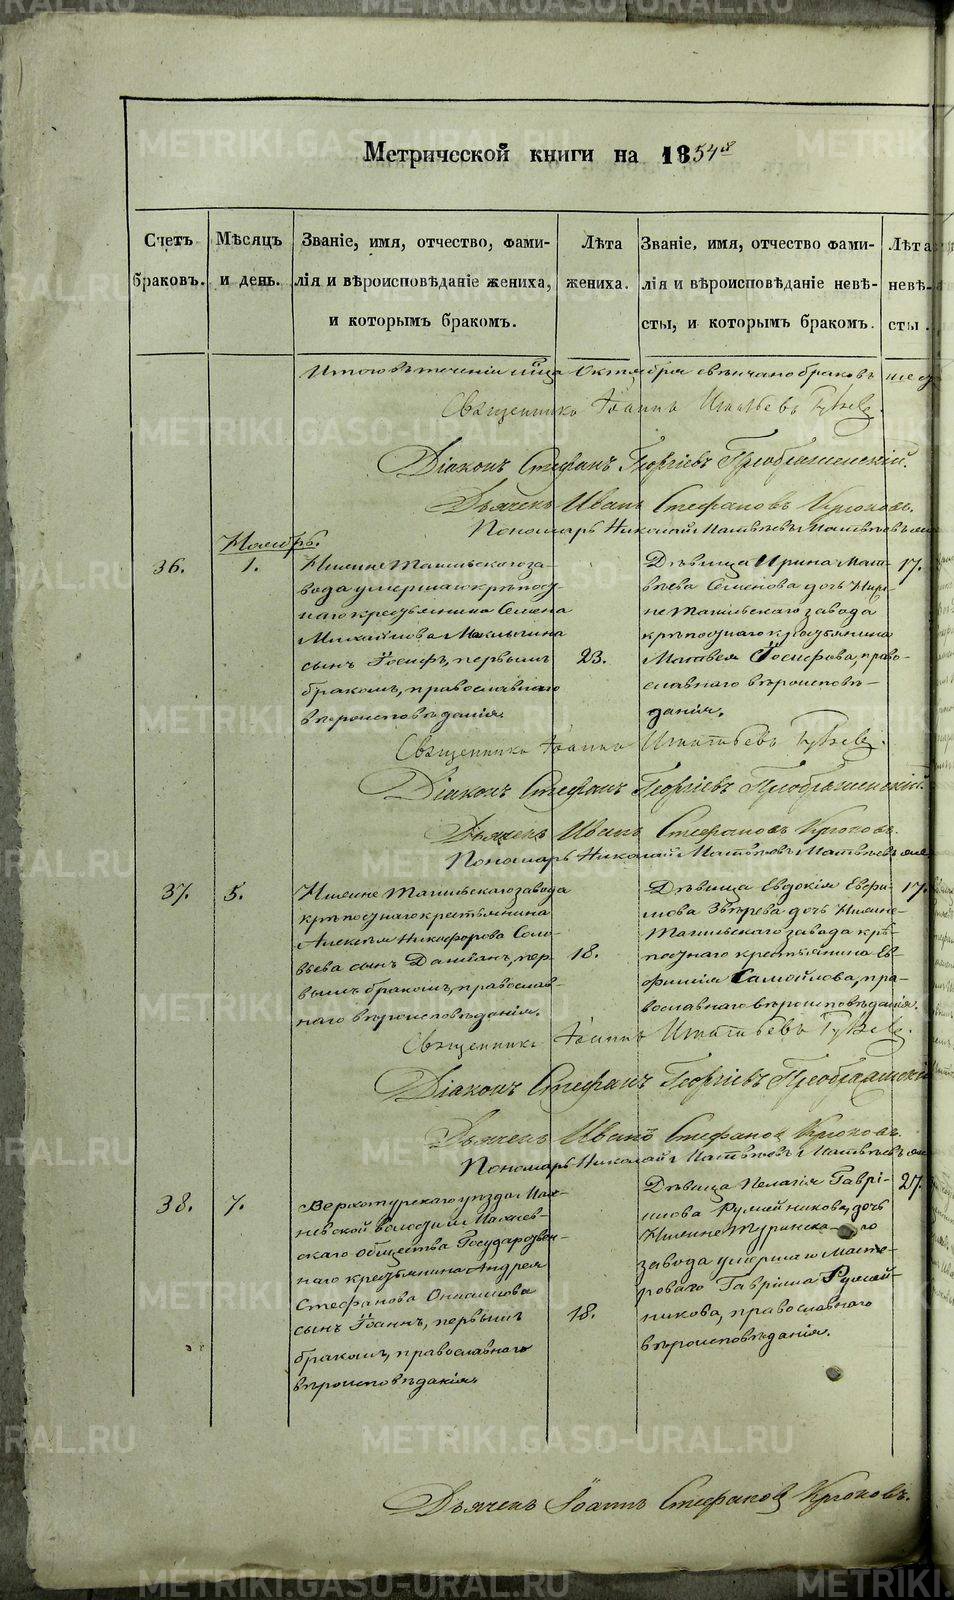 Метрической книги на 1854й
Счетъ браковъ.
Мѣсяцъ и день.
Званіе, имя, отчество, фами-
лія и вѣроисповѣданіе жениха,
и которымъ бракомъ.
Лѣта
жениха.
Званіе, имя, отчество фами-
лія и вѣроисповѣданіе невѣ-
сты, и которымъ бракомъ.
Лѣта
невѣ-
сты.
Итого въ теченіи мца Октября свѣнчано браковъ
Священникъ Іоаннъ Игнатьевъ
Діаконъ Стефанъ Георгіевъ Преображенскій.
Дьячекъ Иванъ Стефановъ Крюковъ.
Пономарь Николай Матвѣевъ Матвѣевъ
Ноябрь.
36.
1.
Нижне Тагильскаго за-
вода умершаго крѣпост-
наго крестьянина Семена
Михайлова
сынъ Іосифъ, первымъ
бракомъ, православнаго
вѣроисповѣданія.
23.
Дѣвица Ирина Мат-
вѣева Семенова дочь Ниж-
не Тагильскаго завода
крѣпостнаго крестьянина
Матвея Іосифова, право-
славнаго вѣроисповѣ-
данія.
17.
Священникъ Іоаннъ Игнатьевъ
Діаконъ Стефанъ Георгіевъ Преображенскій.
Дьячекъ Иванъ Стефановъ Крюковъ.
Пономарь Николай Матвѣевъ Матвѣевъ
37.
5.
Нижне Тагильскаго завода
крѣпостнаго крестьянина
Алексѣя Никифорова Соло-
вьева сынъ Даміанъ, пер-
вымъ бракомъ, православ-
наго вѣроисповѣданія.
18.
Дѣвица Евдокія Евфи-
мова Звѣрева дочь Нижне-
Тагильскаго завода крѣ-
постнаго крестьянина Ев-
фимія Самойлова, пра-
вославнаго вѣроисповѣданія.
17.
Священникъ Іоаннъ Игнатьевъ
Діаконъ Стефанъ Георгіевъ Преображенскій
Дьячекъ Иванъ Стефановъ Крюковъ.
Пономарь Николай Матвѣевъ Матвѣевъ
38.
7.
Верхотурскаго уѣзда
волости
скаго общества Государствен-
наго крестьянина Андрея
Стефанова
сынъ Іоаннъ, первымъ
бракомъ, православнаго
вѣроисповѣданія.
18.
Дѣвица Пелагія Гаврі-
илова Румянникова, дочь
Нижне Туринскаго
завода умершаго Масте-
роваго Гавріила Румян-
никова, православнаго
вѣроисповѣданія.
27.
Дьячекъ Іоаннъ Стефановъ Крюковъ.
METRIKI.GASO-URAL.RU